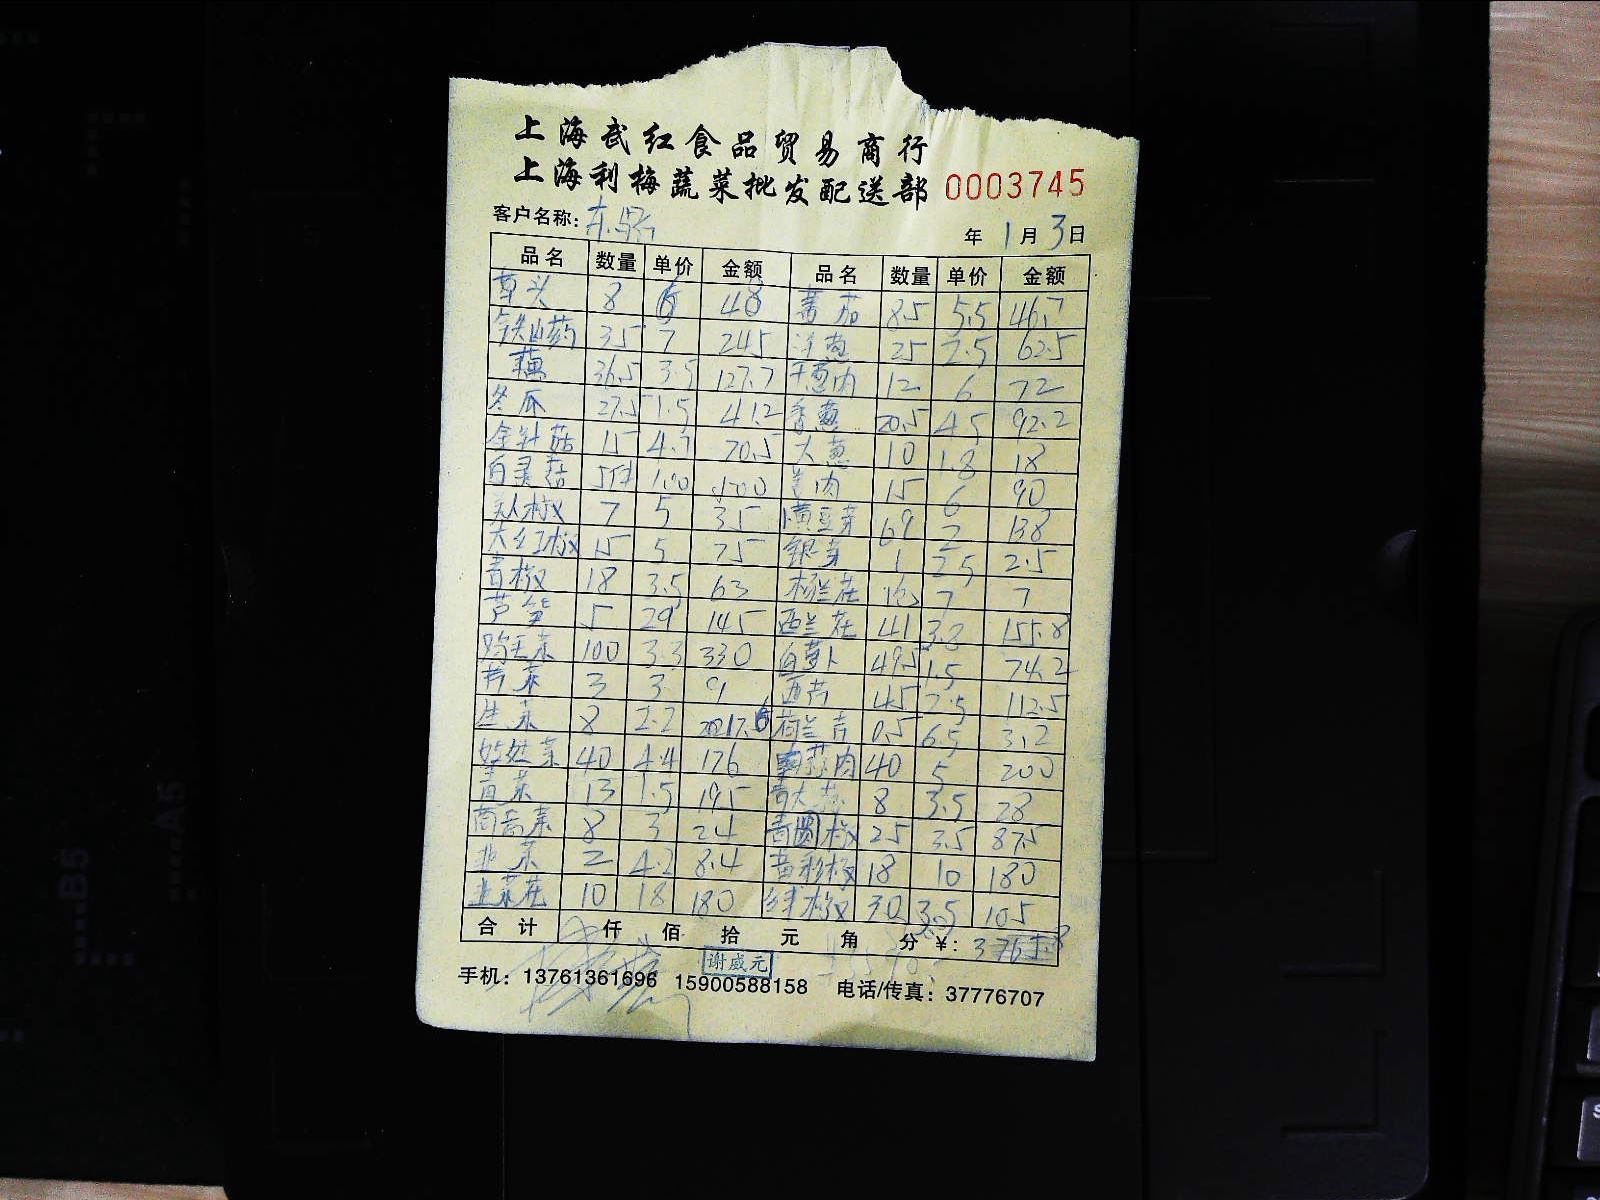 上海武红食品贸易商行
上海利梅蔬菜批发配送部 0003745
客户名称: 年 1月3日
品名 数量 单价 金额 品名 数量 单价 金额
草头 8 6 48 番茄 8.5 5.5 46.7
铁山药 35 7 245 洋葱 25 2.5 62.5
藕 36.5 3.5 127.7 干葱肉 12 6 72
冬瓜 27.5 1.5 41.2 香葱 20.5 4.5 92.2
金针菇 15 4.7 70.5 大葱 10 1.8 18
白灵菇 5件 100 500 姜肉 15 6 90
美人椒 7 5 35 黄豆芽 69 2 138
大红椒 15 5 75 银芽 1 2.5 2.5
青椒 18 3.5 63 7 7
芦笋 5 29 145 西兰花 41 3.8 155.8
鸡毛菜 100 3.3 330 白萝卜 49.5 1.5 74.2
芹菜 3 3 9 西芹 45 2.5 112.5
生菜 8 2.2 17.6 荷兰芹 0.5 6.5 3.2
娃娃菜 40 4.4 176 蒜肉 40 5 200
青菜 13 1.5 19.5 青大蒜 8 3.5 28
茼蒿菜 8 3 24 青圆椒 25 3.5 87.5
韭菜 2 4.2 8.4 黄彩椒 18 10 180
韭菜花 10 18 180 尖椒 30 3.5 105
合计 仟 佰 拾 元 角 分 ¥:
谢威元
手机: 13761361696 15900588158 电话/传真: 37776707